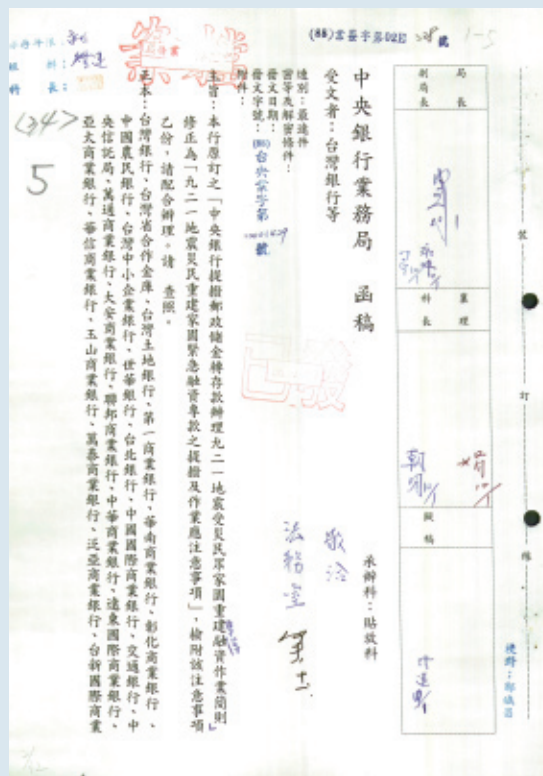 (88)業登字第02區 228 號
1-5
局長
副局長
襄理
科長
擬稿
裝
訂
線
校對：鄭儀茵
中央銀行業務局 函稿
承辦科：貼放科
受文者：台灣銀行等
速別：最速件
密等及解密條件：
發文日期：
發文字號：(88)台央業字第 號
附件：
敬洽
法務室
主旨：本行原訂之「中央銀行提撥郵政儲金轉存款辦理九二一地震受災民眾家園重建融資作業簡則」
修正為「九二一地震災民重建家園緊急融資專款之提撥及作業應注意事項」，檢附該注意事項
乙份，請配合辦理。請 查照。
正本：台灣銀行、台灣省合作金庫、台灣土地銀行、第一商業銀行、華南商業銀行、彰化商業銀行、
中國農民銀行、台灣中小企業銀行、世華銀行、台北銀行、中國國際商業銀行、交通銀行、中
央信託局、萬通商業銀行、大安商業銀行、聯邦商業銀行、中華商業銀行、遠東國際商業銀行、
亞太商業銀行、華信商業銀行、玉山商業銀行、萬泰商業銀行、泛亞商業銀行、台新國際商業
已發
<347>
5